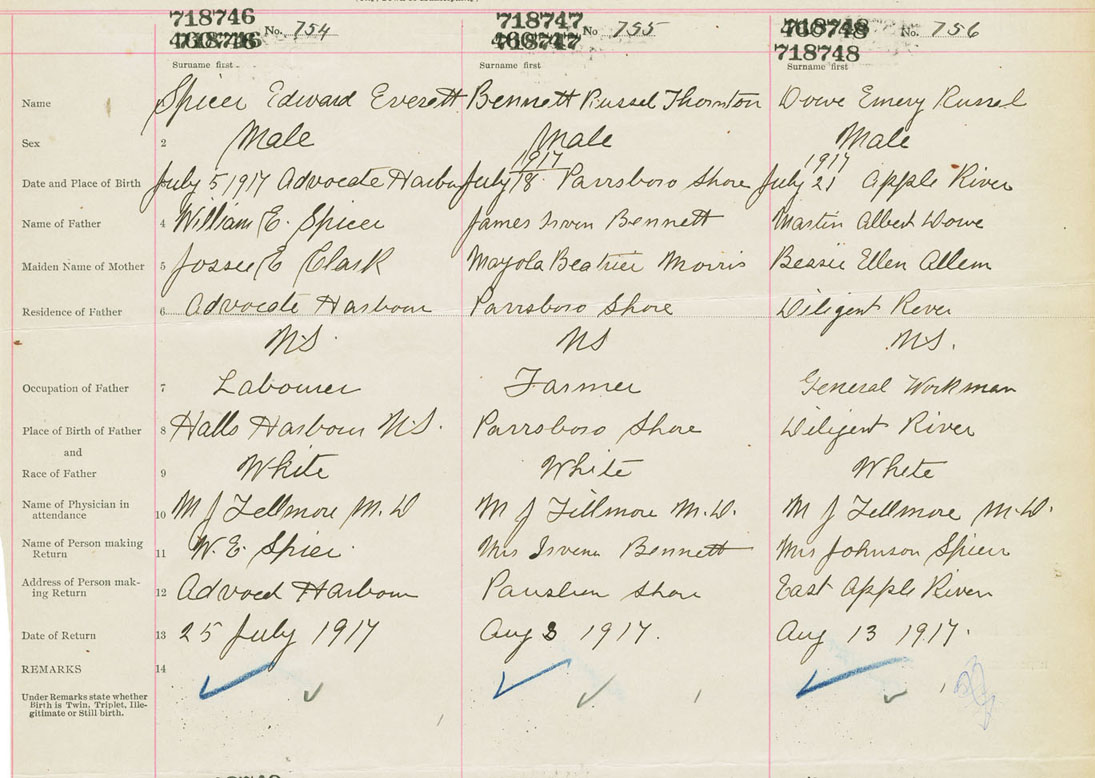 718746 No. 754 718747 No 755 468748 No. 756
460746 718747 718748
Surname first Surname first Surname first
Name Spicer Edward Everett Bennett Russel Thornton Dowe Emery Russel
Sex 2 Male Male Male
1917 1917
Date and Place of Birth July 5 1917 Advocate Harbou July 18 Parrsboro Shore July 21 Apple River
Name of Father 4 William E. Spicer James Irven Bennett Martin Albert Dowe
Maiden Name of Mother 5 Jossee E Clark Mayola Beatrice Morris Bessie Ellen Allem
Residence of Father 6 Advocate Harbour Parrsboro Shore Diligent River
N.S. NS N.S.
Occupation of Father 7 Labourer Farmer General Workman
Place of Birth of Father 8 Halls Harbour N.S. Parrsboro Shore Diligent River
and
Race of Father 9 White White White
Name of Physician in
attendance 10 M J Fillmore M.D M J Fillmore M.D. M J Fillmore M.D.
Name of Person making
Return 11 W. E. Spicer Mrs Irvena Bennett Mrs Johnson Spicer
Address of Person mak-
ing Return 12 Advocd Harbour Shore East Apple River
Date of Return 13 25 July 1917 Aug 3 1917. Aug 13 1917.
REMARKS 14
Under Remarks state whether
Birth is Twin, Triplet, Ille-
gitimate or Still birth.